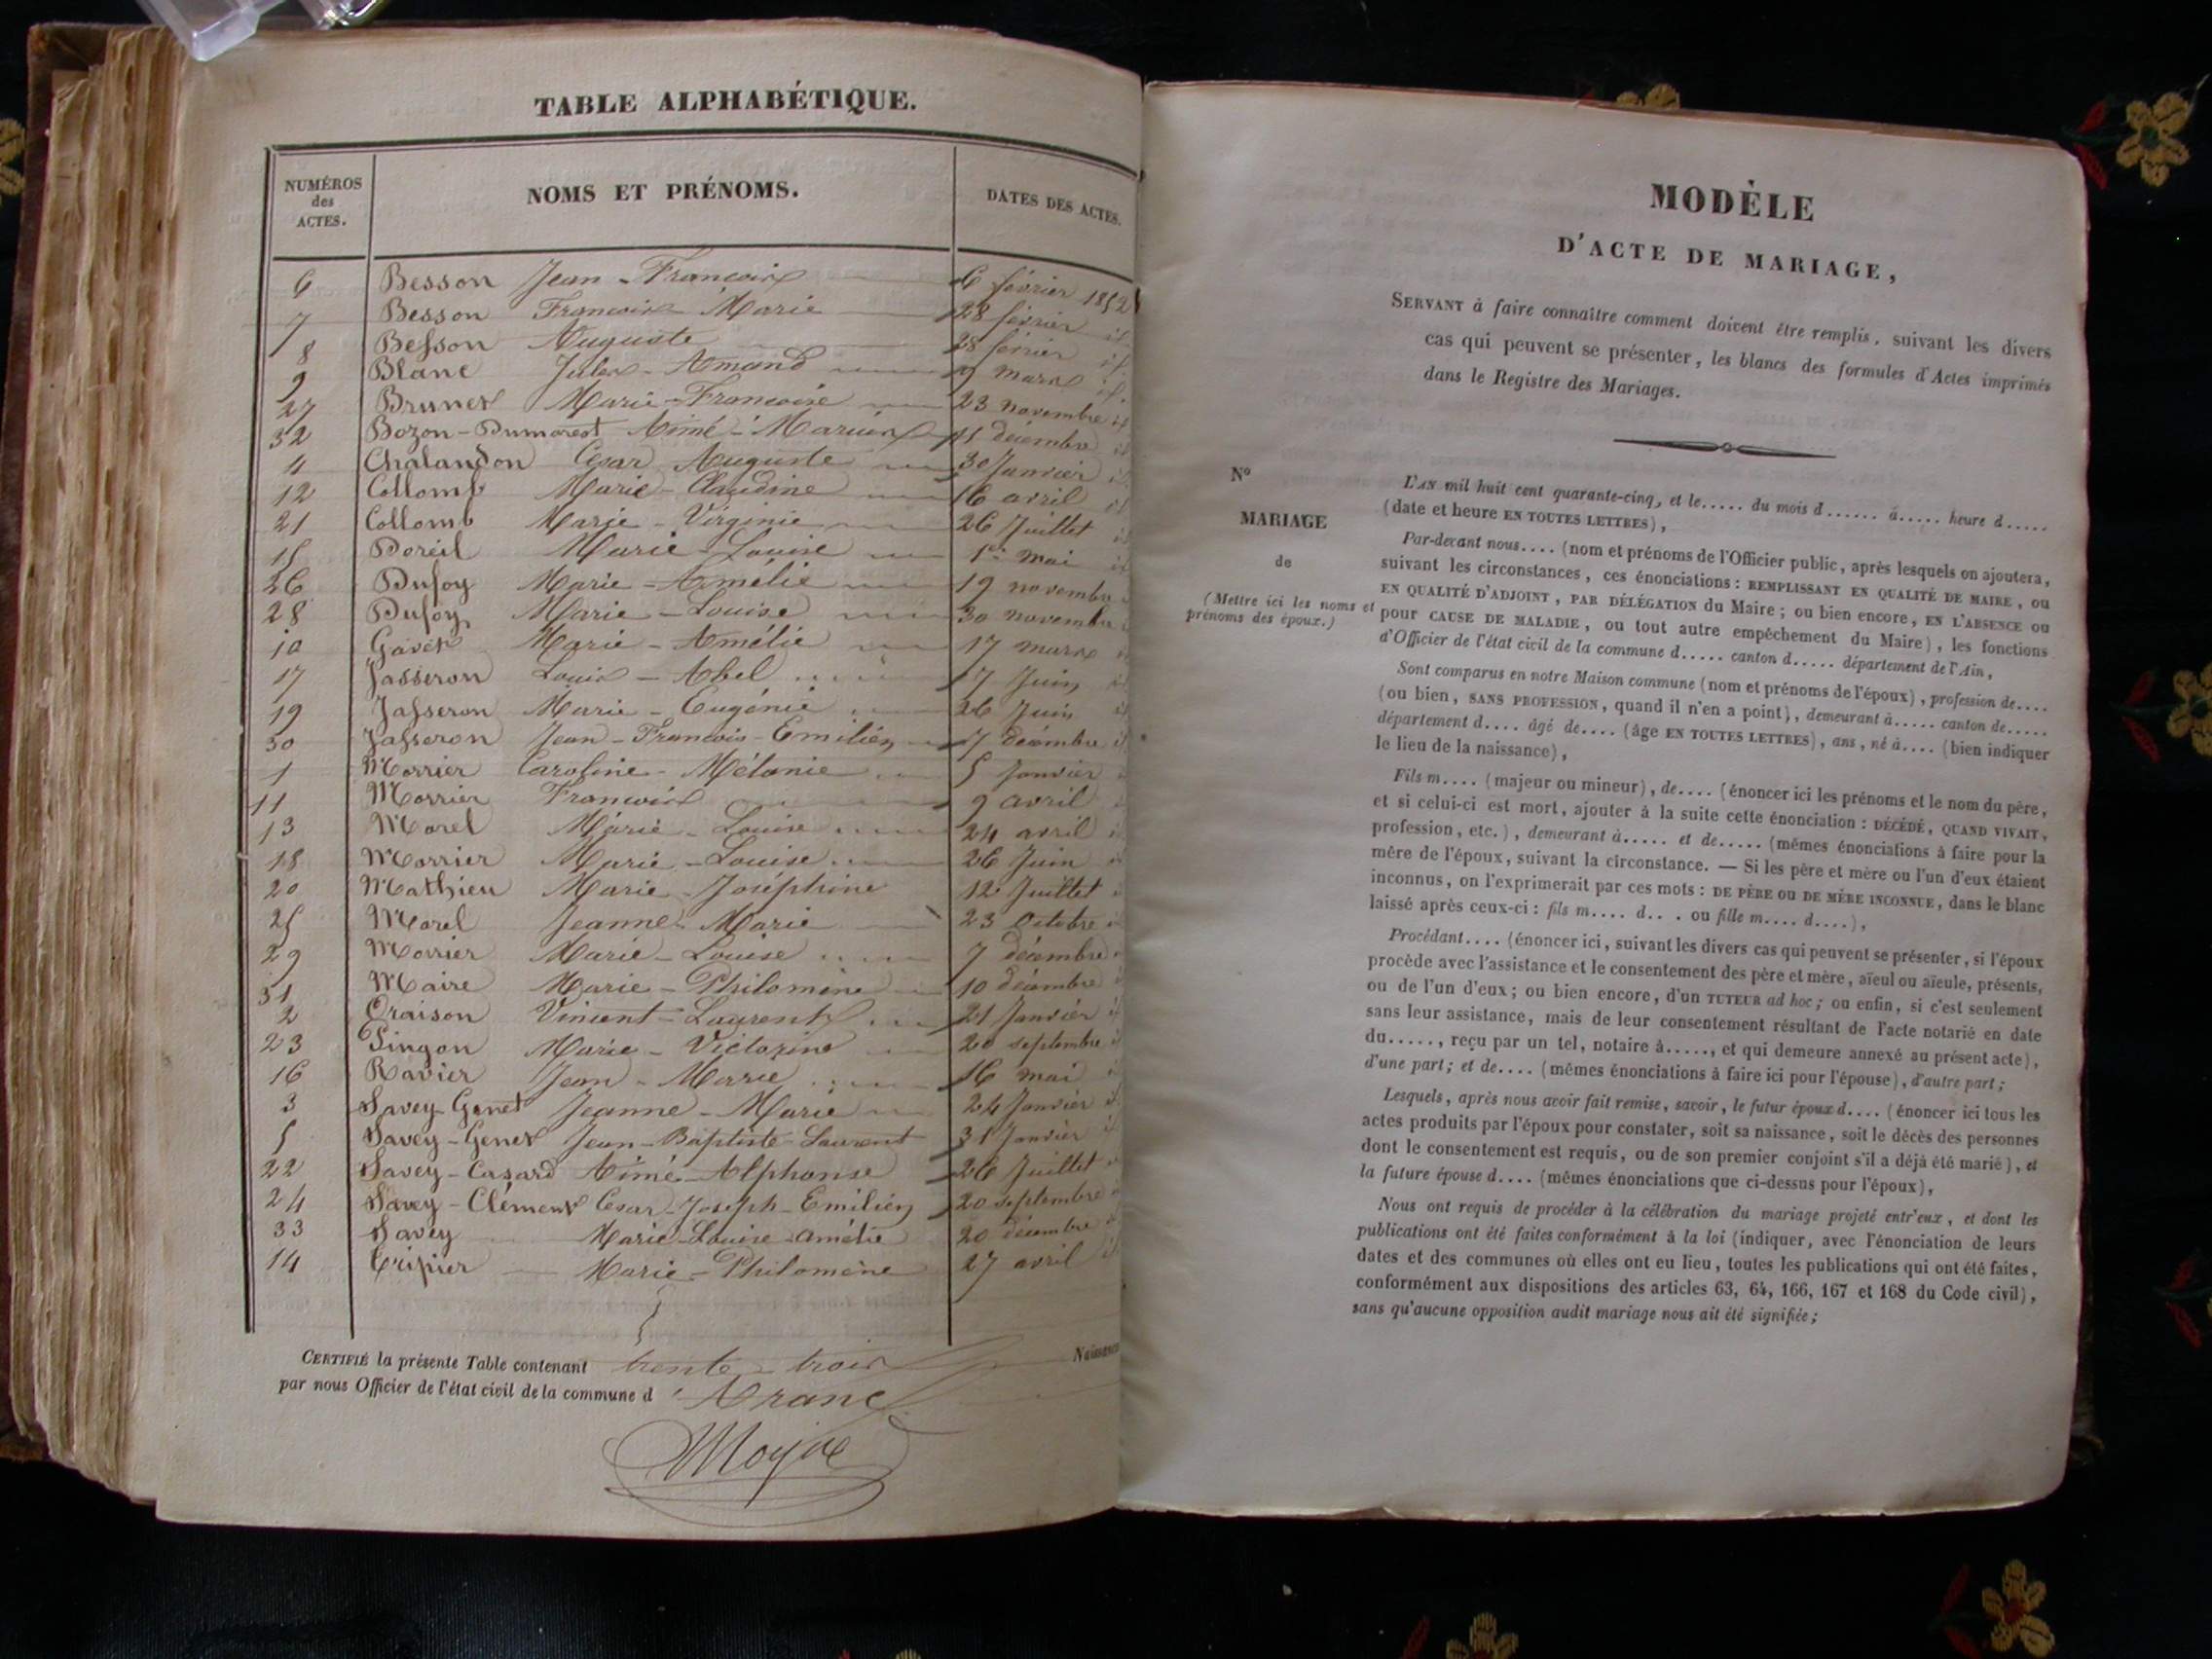 TABLE ALPHABÉTIQUE.
NUMÉROS des ACTES.
NOMS ET PRÉNOMS.
DATES DES ACTES.
6 Besson Jean-François 6 février 1852
7 Besson François Marie 28 février id.
8 Besson Auguste 28 février id.
9 Blanc Jules-Amand 9 mars id.
27 Brunet Marie-Françoise 23 novembre id
32 Bozon-Dumarest Aimé-Marius 11 décembre id
4 Chalandon César Auguste 30 Janvier id
12 Collomb Marie-Claudine 16 avril id
21 Collomb Marie-Virginie 26 Juillet id
15 Doréil Marie-Louise 1er mai id
26 Dufoy Marie-Amélie 19 novembre
28 Dufoy Marie-Louise 30 novembre
10 Gavet Marie-Amélie 17 mars id
17 Jasseron Louis-Abel 17 Juin id
19 Jasseron Marie-Eugénie 26 Juin id
30 Jasseron Jean-François-Emilien 7 décembre id
1 Morrier Caroline-Mélanie 5 Janvier
11 Morrier François 9 avril
13 Morel Marie-Louise 24 avril
18 Morrier Marie-Louise 26 Juin id
20 Mathieu Marie-Joséphine 12 Juillet
25 Morel Jeanne-Marie 23 Octobre
29 Morrier Marie-Louise 7 décembre
31 Maire Marie-Philomène 10 décembre
2 Oraison Vincent-Laurent 21 Janvier id
23 Pingon Marie-Victorine 20 septembre id
16 Ravier Jean-Marie 16 mai
3 Savey-Genet Jeanne-Marie 24 Janvier id
5 Savey-Genet Jean-Baptiste-Laurent 31 Janvier id
22 Savey-Casard Aimé-Alphonse 26 Juillet
24 Savey-Clément César-Joseph-Emilien 20 septembre
33 Savey Marie-Louise-Amélie 20 décembre
14 Tripier Marie-Philomène 27 avril id
CERTIFIÉ la présente Table contenant trente-trois Naissances
par nous Officier de l'état civil de la commune d'Aranc
MODÈLE
D'ACTE DE MARIAGE,
SERVANT à faire connaître comment doivent être remplis, suivant les divers
cas qui peuvent se présenter, les blancs des formules d'Actes imprimés
dans le Registre des Mariages.
N°
MARIAGE
de
(Mettre ici les noms et
prénoms des époux.)
L'AN mil huit cent quarante-cinq, et le..... du mois d...... à..... heure d.....
(date et heure EN TOUTES LETTRES),
Par-devant nous.... (nom et prénoms de l'Officier public, après lesquels on ajoutera,
suivant les circonstances, ces énonciations : REMPLISSANT EN QUALITÉ DE MAIRE, ou
EN QUALITÉ D'ADJOINT, PAR DÉLÉGATION du Maire; ou bien encore, EN L'ABSENCE ou
pour CAUSE DE MALADIE, ou tout autre empêchement du Maire), les fonctions
d'Officier de l'état civil de la commune d..... canton d..... département de l'Ain,
Sont comparus en notre Maison commune (nom et prénoms de l'époux), profession de....
(ou bien, SANS PROFESSION, quand il n'en a point), demeurant à..... canton de.....
département d.... âgé de.... (âge EN TOUTES LETTRES), ans, né à.... (bien indiquer
le lieu de la naissance),
Fils m.... (majeur ou mineur), de.... (énoncer ici les prénoms et le nom du père,
et si celui-ci est mort, ajouter à la suite cette énonciation : DÉCÉDÉ, QUAND VIVAIT,
profession, etc.), demeurant à..... et de..... (mêmes énonciations à faire pour la
mère de l'époux, suivant la circonstance. — Si les père et mère ou l'un d'eux étaient
inconnus, on l'exprimerait par ces mots : DE PÈRE OU DE MÈRE INCONNUE, dans le blanc
laissé après ceux-ci : fils m.... d... ou fille m.... d....),
Procédant.... (énoncer ici, suivant les divers cas qui peuvent se présenter, si l'époux
procède avec l'assistance et le consentement des père et mère, aïeul ou aïeule, présents,
ou de l'un d'eux; ou bien encore, d'un TUTEUR ad hoc; ou enfin, si c'est seulement
sans leur assistance, mais de leur consentement résultant de l'acte notarié en date
du....., reçu par un tel, notaire à....., et qui demeure annexé au présent acte),
d'une part; et de.... (mêmes énonciations à faire ici pour l'épouse), d'autre part;
Lesquels, après nous avoir fait remise, savoir, le futur époux d.... (énoncer ici tous les
actes produits par l'époux pour constater, soit sa naissance, soit le décès des personnes
dont le consentement est requis, ou de son premier conjoint s'il a déjà été marié), et
la future épouse d.... (mêmes énonciations que ci-dessus pour l'époux),
Nous ont requis de procéder à la célébration du mariage projeté entr'eux, et dont les
publications ont été faites conformément à la loi (indiquer, avec l'énonciation de leurs
dates et des communes où elles ont eu lieu, toutes les publications qui ont été faites,
conformément aux dispositions des articles 63, 64, 166, 167 et 168 du Code civil),
sans qu'aucune opposition audit mariage nous ait été signifiée;